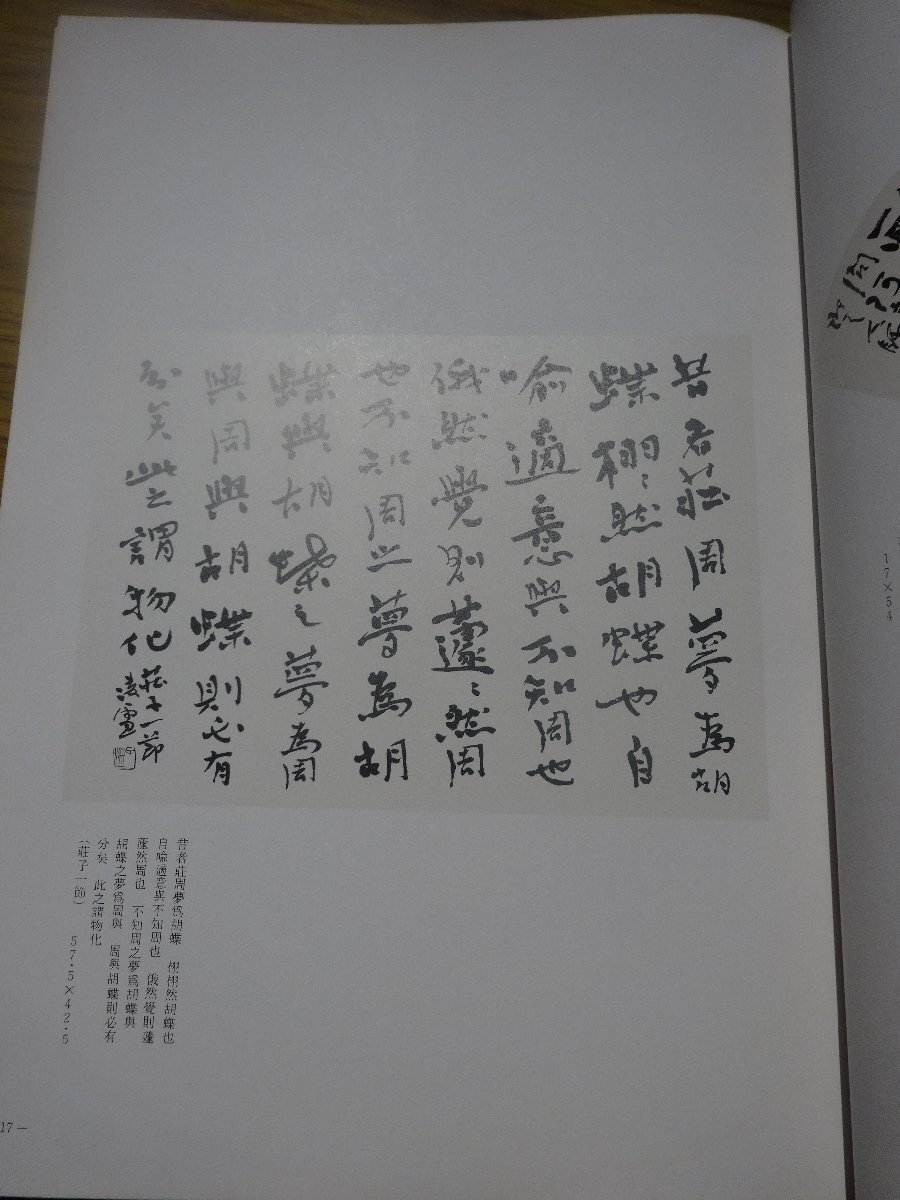 昔者莊周夢為胡
蝶栩〻然胡蝶也自
喻適意與不知周也
俄然覺則蘧〻然周
也不知周之夢為胡
蝶與胡蝶之夢為周
與周與胡蝶則必有
分矣此之謂物化
莊子一節
凌雪
昔者莊周夢爲胡蝶　栩栩然胡蝶也
自喩適意與不知周也　俄然覺則蘧
蘧然周也　不知周之夢爲胡蝶與
胡蝶之夢爲周與　周與胡蝶則必有
分矣　此之謂物化
（莊子一節）　57・5×42・5
17×54
17—